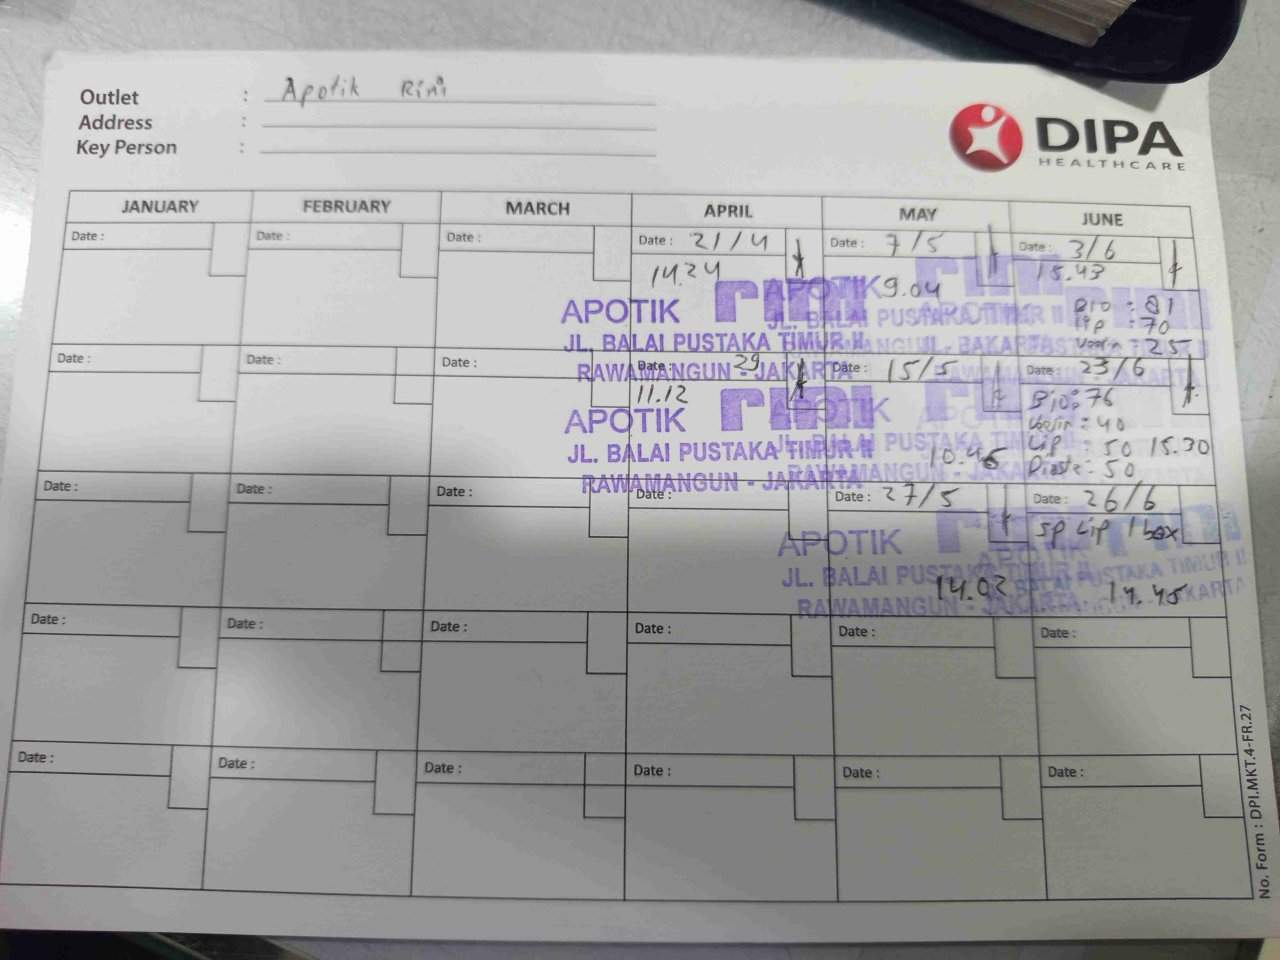 Outlet : Apotik Rini
Address :
Key Person :
DIPA
HEALTHCARE
JANUARY FEBRUARY MARCH APRIL MAY JUNE
Date : Date : Date : Date : 21/4 Date : 7/5 Date : 3/6
14.24 9.04 15.43
Bio : 81
Lip : 70
: 25
APOTIK rini
JL. BALAI PUSTAKA TIMUR II
RAWAMANGUN - JAKARTA
Date : Date : Date : Date : 29 Date : 15/5 Date : 23/6
11.12 10.45
Bio : 76
: 40
Lip : 50 15.30
: 50
APOTIK rini
JL. BALAI PUSTAKA TIMUR II
RAWAMANGUN - JAKARTA
Date : Date : Date : Date : Date : 27/5 Date : 26/6
14.02
SP Lip 1 box
14.45
APOTIK
JL. BALAI PUSTAKA TIMUR II
RAWAMANGUN - JAKARTA
Date : Date : Date : Date : Date : Date :
Date : Date : Date : Date : Date : Date :
No. Form : DPI.MKT.4-FR.27